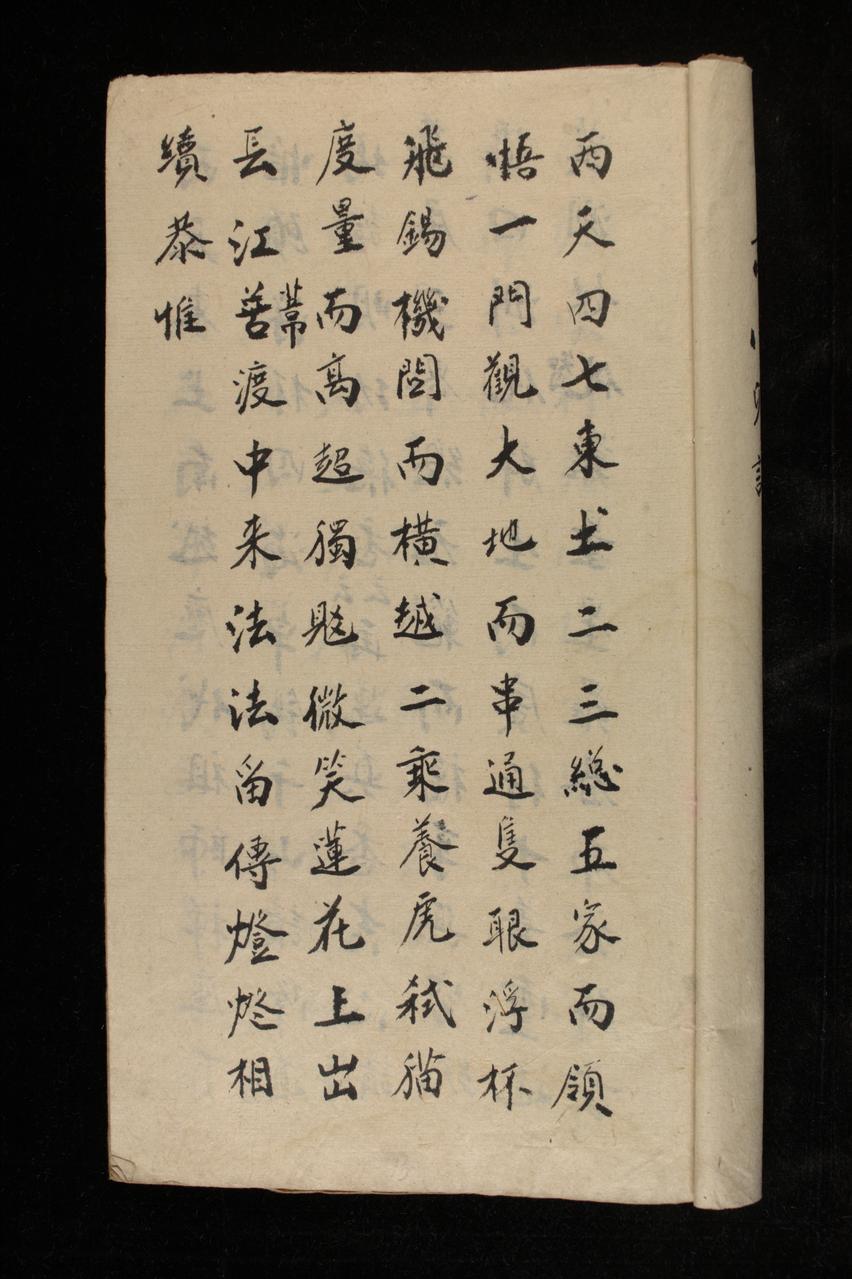 西天四七東土二三総五家而領
悟一門觀大地而串通隻眼浮杯
飛錫機関而横越二乘養虎弑猫
度量而髙超獨𠒎微笑蓮花上出
長江善渡中来法法畄傳燈燈相
常
續恭惟